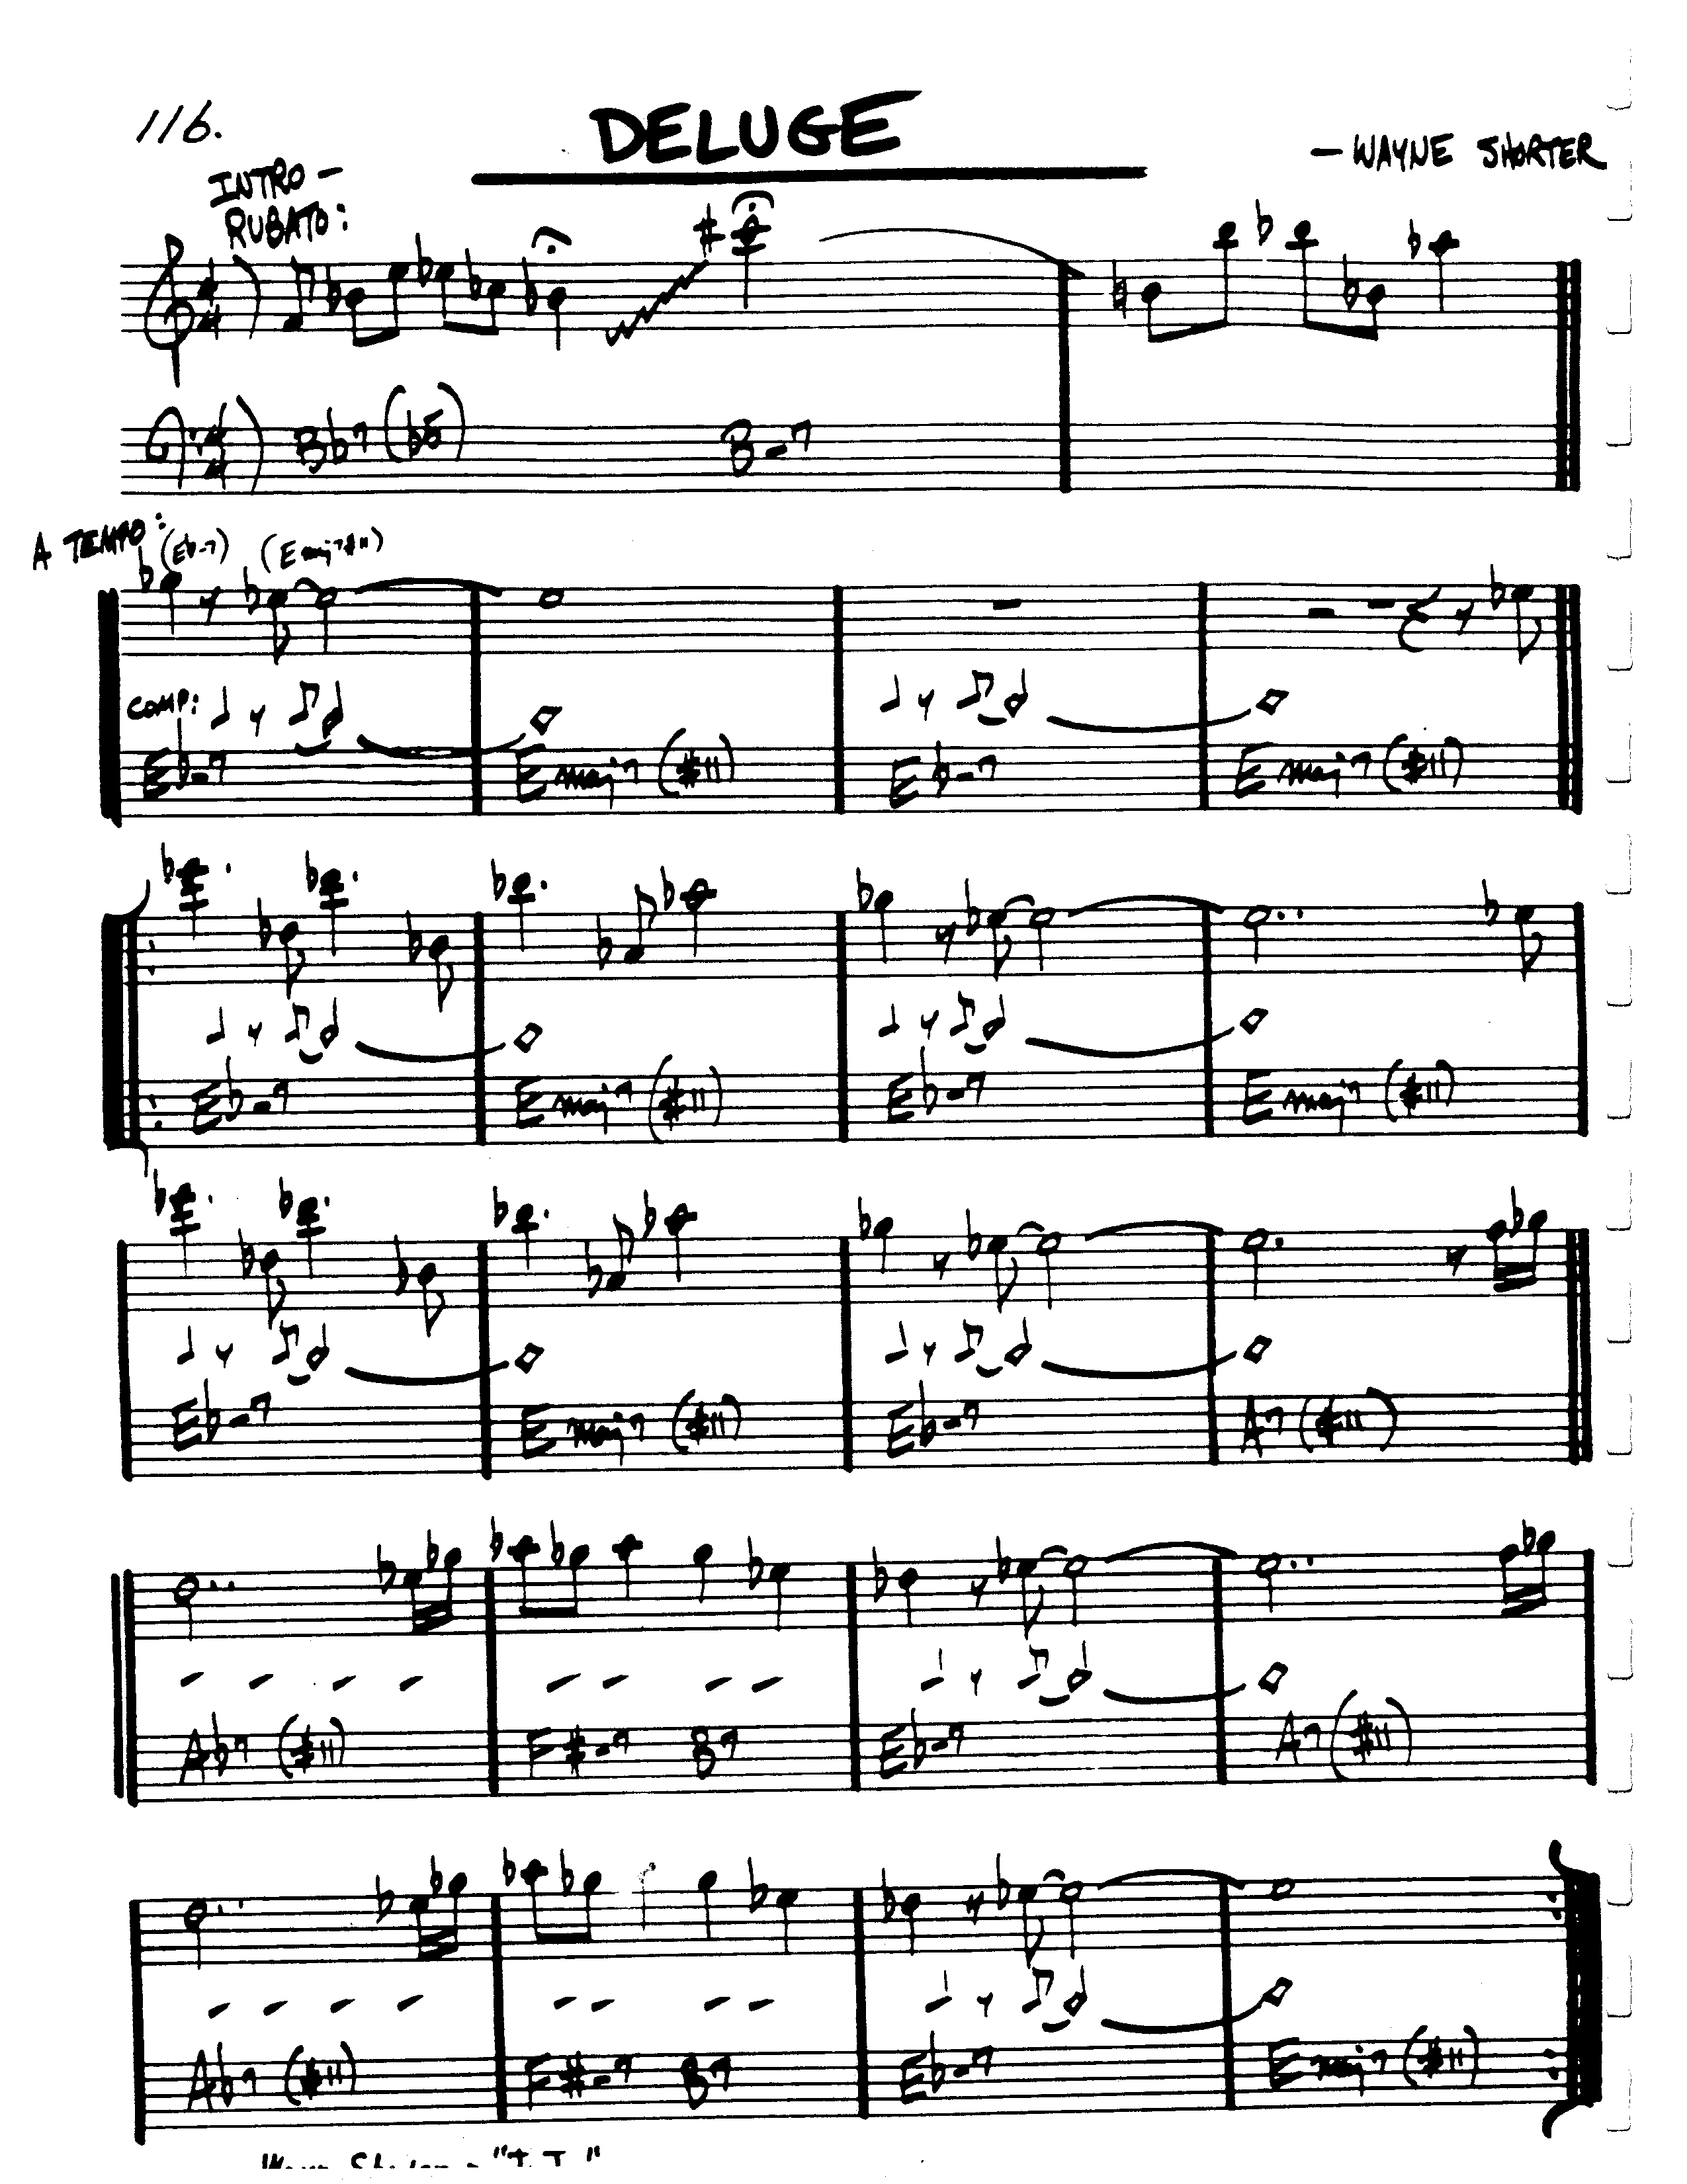 116.
DELUGE
— WAYNE SHORTER
INTRO —
RUBATO:
B♭7 (♭5) B-7
A TEMPO: (E♭-7) (E maj7#11)
COMP:
E♭-7 E maj7 (#11) E♭-7 E maj7 (#11)
E♭-7 E maj7 (#11) E♭-7 E maj7 (#11)
E♭-7 E maj7 (#11) E♭-7 A7 (#11)
A♭7 (#11) F#-7 B7 E♭-7 A7 (#11)
A♭7 (#11) F#-7 B7 E♭-7 E maj7 (#11)